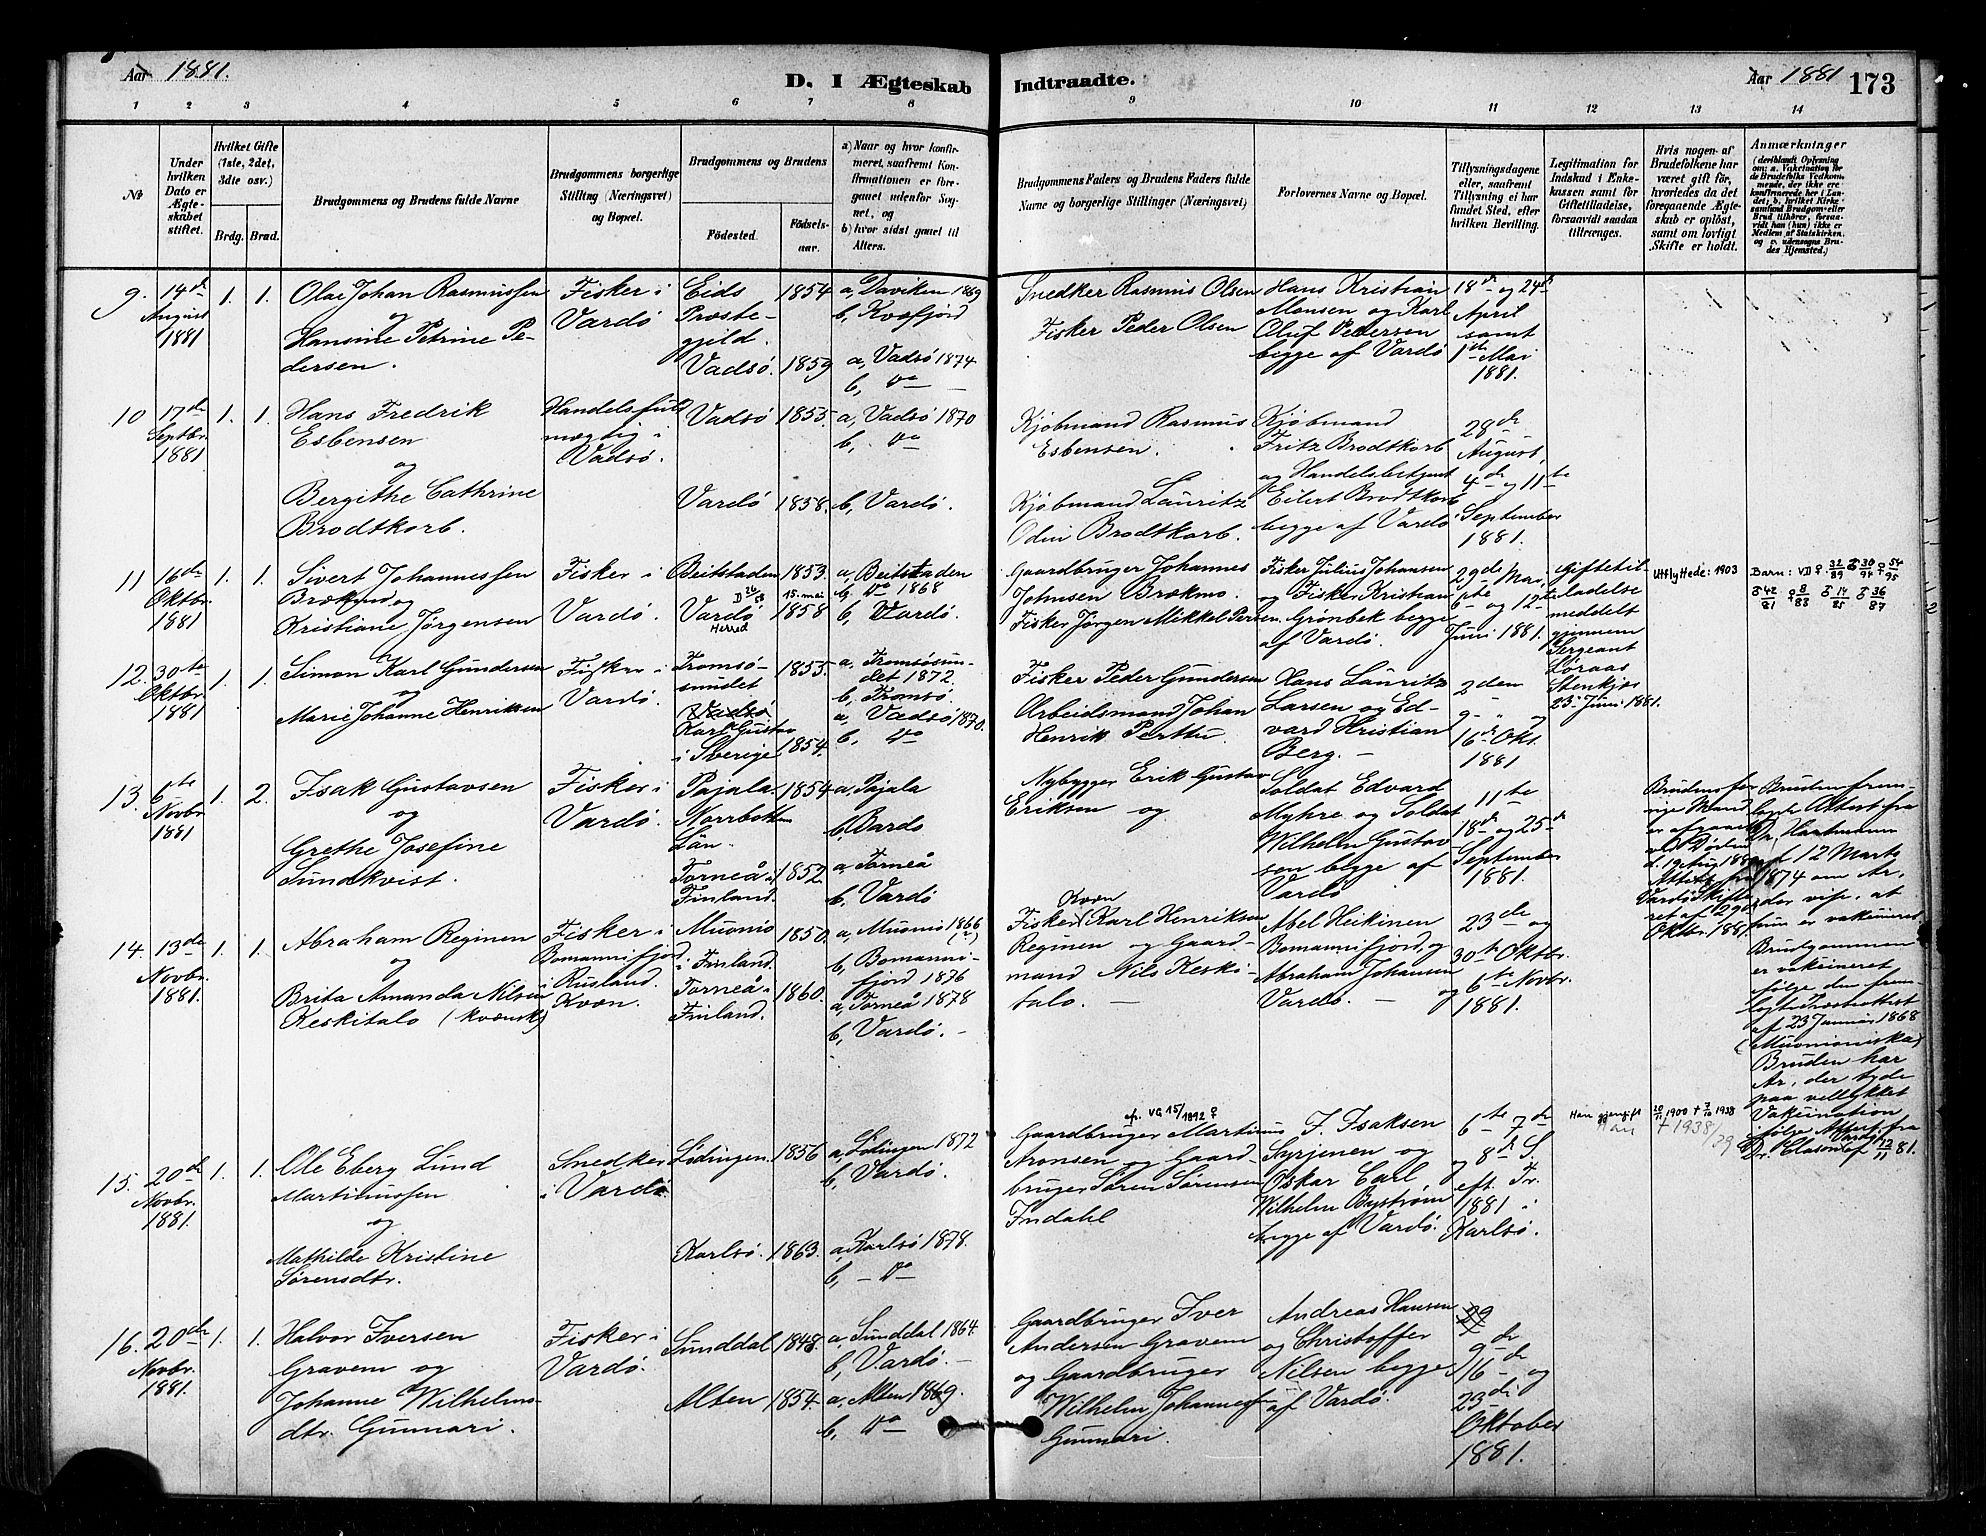 Aar 1881.
D. I Ægteskab
Indtraadte.
Aar 1881
173
1 2 3 4 5 6 7 8 9 10 11 12 13 14
№
Under hvilken Dato er Ægteskabet stiftet.
Hvilket Gifte (1ste, 2det, 3dte osv.)
Brdg. Brud.
Brudgommens og Brudens fulde Navne
Brudgommens borgerlige Stilling (Næringsvei) og Bopæl.
Brudgommens og Brudens
Fødested.
Fødselsaar.
a) Naar og hvor konfirmeret, saafremt Konfirmationen er foregaaet udenfor Sognet, og
b) hvor sidst gaaet til Alters.
Brudgommens Faders og Brudens Faders fulde Navne og borgerlige Stillinger (Næringsvei)
Forlovernes Navne og Bopæl.
Tillysningsdagene eller, saafremt Tillysning ei har fundet Sted, efter hvilken Bevilling.
Legitimation for Indskud i Enkekassen samt for Giftetilladelse, forsaavidt saadan tiltrænges.
Hvis nogen af Brudefolkene har været gift før, hvorledes da det foregaaende Ægteskab er opløst, samt om lovligt Skifte er holdt.
Anmærkninger
9. 14de August 1881
1. 1.
Olai Johan Rasmussen
og
Hansine Petrine Pedersen.
Fisker i
Vardö
Eids
Præstegjeld.
Vadsö.
1854
1859
a, Daviken 1869
b, Kvæfjord
a, Vadsö 1874
b, do
Snedker Rasmus Olsen
Fisker Peder Olsen
Hans Kristian
Monsen og Karl
Oluf Pedersen
begge af Vardö
18de og 24de
April
samt
1ste Mai
1881.
10 17de Septbr. 1881
1. 1.
Hans Fredrik
Esbensen
og
Bergithe Cathrine
Brodtkorb.
Handelsfuldmægtig i
Vadsö.
Vadsö 1855
Vardö 1858.
a, Vadsö 1870
b, do
b, Vardö.
Kjöbmand Rasmus
Esbensen.
Kjöbmand Lauritz
Odin Brodtkorb.
Kjöbmand
Fritz Brodtkorb
og Handelsbetjent
Eilert Brodtkorb
begge af Vardö
28de
August,
4de og 11te
September
1881.
11 16de Oktbr. 1881
1. 1.
Sivert Johannessen
Brækmo og
Kristiane Jørgensen
Fisker i
Vardö.
Beitstaden
Vardö
Herred
1853.
15. mai
1858
a, Beitstaden
do 1868
b, Vardö.
Gaardbruger Johannes
Johnsen Brækmo.
Fisker Jørgen Mikkel Persen.
Fisker Julius Johansen
og Fisker Kristian
Grønbek begge
af Vardö.
29de Mai,
6te og 12te
Juni 1881.
Giftetilladelse
meddelt
gjennem
Sergeant
Løraas
Stenkjær
23. Juni 1881.
Utflyttede: 1903
Barn: VD ♀ 32/89 ♂ 30/94 ♀ 54/95
♂ 42/81 ♀ 8/83 ♂ 14/85 ♂ 36/87
12. 30te Oktbr. 1881
1. 1.
Simon Karl Gundersen
og
Marie Johanne Henriksen
Fisker i
Vardö.
Tromsösundet
Vadsö
Karl Gustav
i Sverige
1855.
1854.
a, Tromsösundet 1872.
b, Tromsö.
a, Vadsö 1870.
b, do
Fisker Peder Gundersen
Arbeidsmand Johan
Henrik Perttu.
Hans Lauritz
Larsen og Edvard Kristian
Berg.
2den
9 - og
16de Okt.
1881
13. 6te Novbr. 1881
1. 2.
Isak Gustavsen
og
Grethe Josefine
Sundkvist.
Fisker i
Vardö.
Pajala
Norrbotten
Län.
Torneå i
Finland.
1854
1852
a, Pajala
b, Vardö
a, Torneå
b, Vardö
Nybygger Erik Gustav
Eriksen og
Soldat Edvard
Myhre og Soldat
Wilhelm Gustavsen begge af
Vardö
11te
18de og 25de
September
1881.
Brudens forrige Mand
er afgaaet
ved Døden
d. 19 Aug 1880
Attest fra
Vardö Skifteret af 29de
Oktbr. 1881.
Bruden fremlagte Attest fra
Dr. Haatmann
af 12 Marts
1874 om Ar,
der vise, at
hun er vakcineret
14. 13de Novbr. 1881.
1. 1.
Abraham Reginen
og
Brita Amanda Nilsen
Keskitalo (kvænsk)
Fisker i
Bomannifjord
i Rusland.
Kvæn.
Muonio
i Finland.
Torneå i
Finland.
1850.
1860.
a, Muonio 1866
b, Bomannifjord 1876
a, Torneå 1878
b, Vardö.
Kvæn
Fisker Karl Henriksen
Reginen og Gaardmand Nils Keskitalo.
Abel Heikinen
Bomannifjord, og
Abraham Johansen
Vardö.
23de og
30te Oktbr.
og 6te Novbr.
1881.
Brudgommen
er vakcineret
ifølge den fremlagte Præsteattest
af 23 Januar 1868
(Muonioniska)
Bruden har
Ar, der tyde
paa vellykket
Vakcination
ifølge Attest fra
Dr. Clason af Vardö 12/11 81.
15. 20de Novbr. 1881.
1. 1.
Ole Eberg Lund
Martinussen
og
Mathilde Kristine
Sørensdtr.
Snedker
i Vardö
Lödingen. 1856
Karlsö. 1863.
a, Lödingen 1872
b, Vardö.
a, Karlsö 1878.
b, - do
VG 15/1892 ♀
Gaardbruger Martinus
Aronsen og Gaardbruger Sören Sörensen
Indahl
F. Isaksen
Syrjenen og
Oskar Carl
Wilhelm Byström
begge af Vardö.
6te 7de
og 8de S.
eft. Tr.
1881
Karlsö.
Han gjengift
20/11 1900 + 7/10 1938
Han + 1938/29
16. 20de Novbr. 1881.
1. 1.
Halvor Iversen
Gravem og
Johanne Wilhelmsdtr. Gunnari.
Fisker i
Vardö.
Sunddal 1848.
Alten 1854.
a, Sunddal 1864.
b, Vardö.
a, Alten 1869.
b, do
Gaardbruger Iver
Andersen Gravem
og Gaardbruger
Wilhelm Johannessen
Gunnari.
Andreas Hansen
og Christoffer
Nilsen begge
af Vardö.
9de
16de og
23de
Oktober
1881.